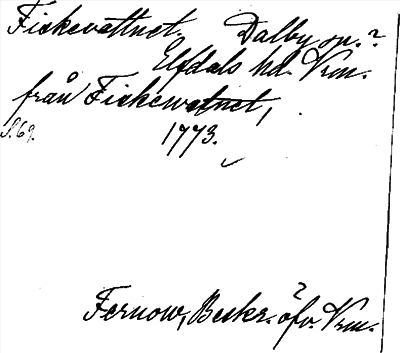 Fiskevattnet. Dalby sn.?
Elfdals hd. Vrm.
från Fiskewatnet,
S. 69. 1773.
Fernow, Beskr. öfv. Vrm.
?